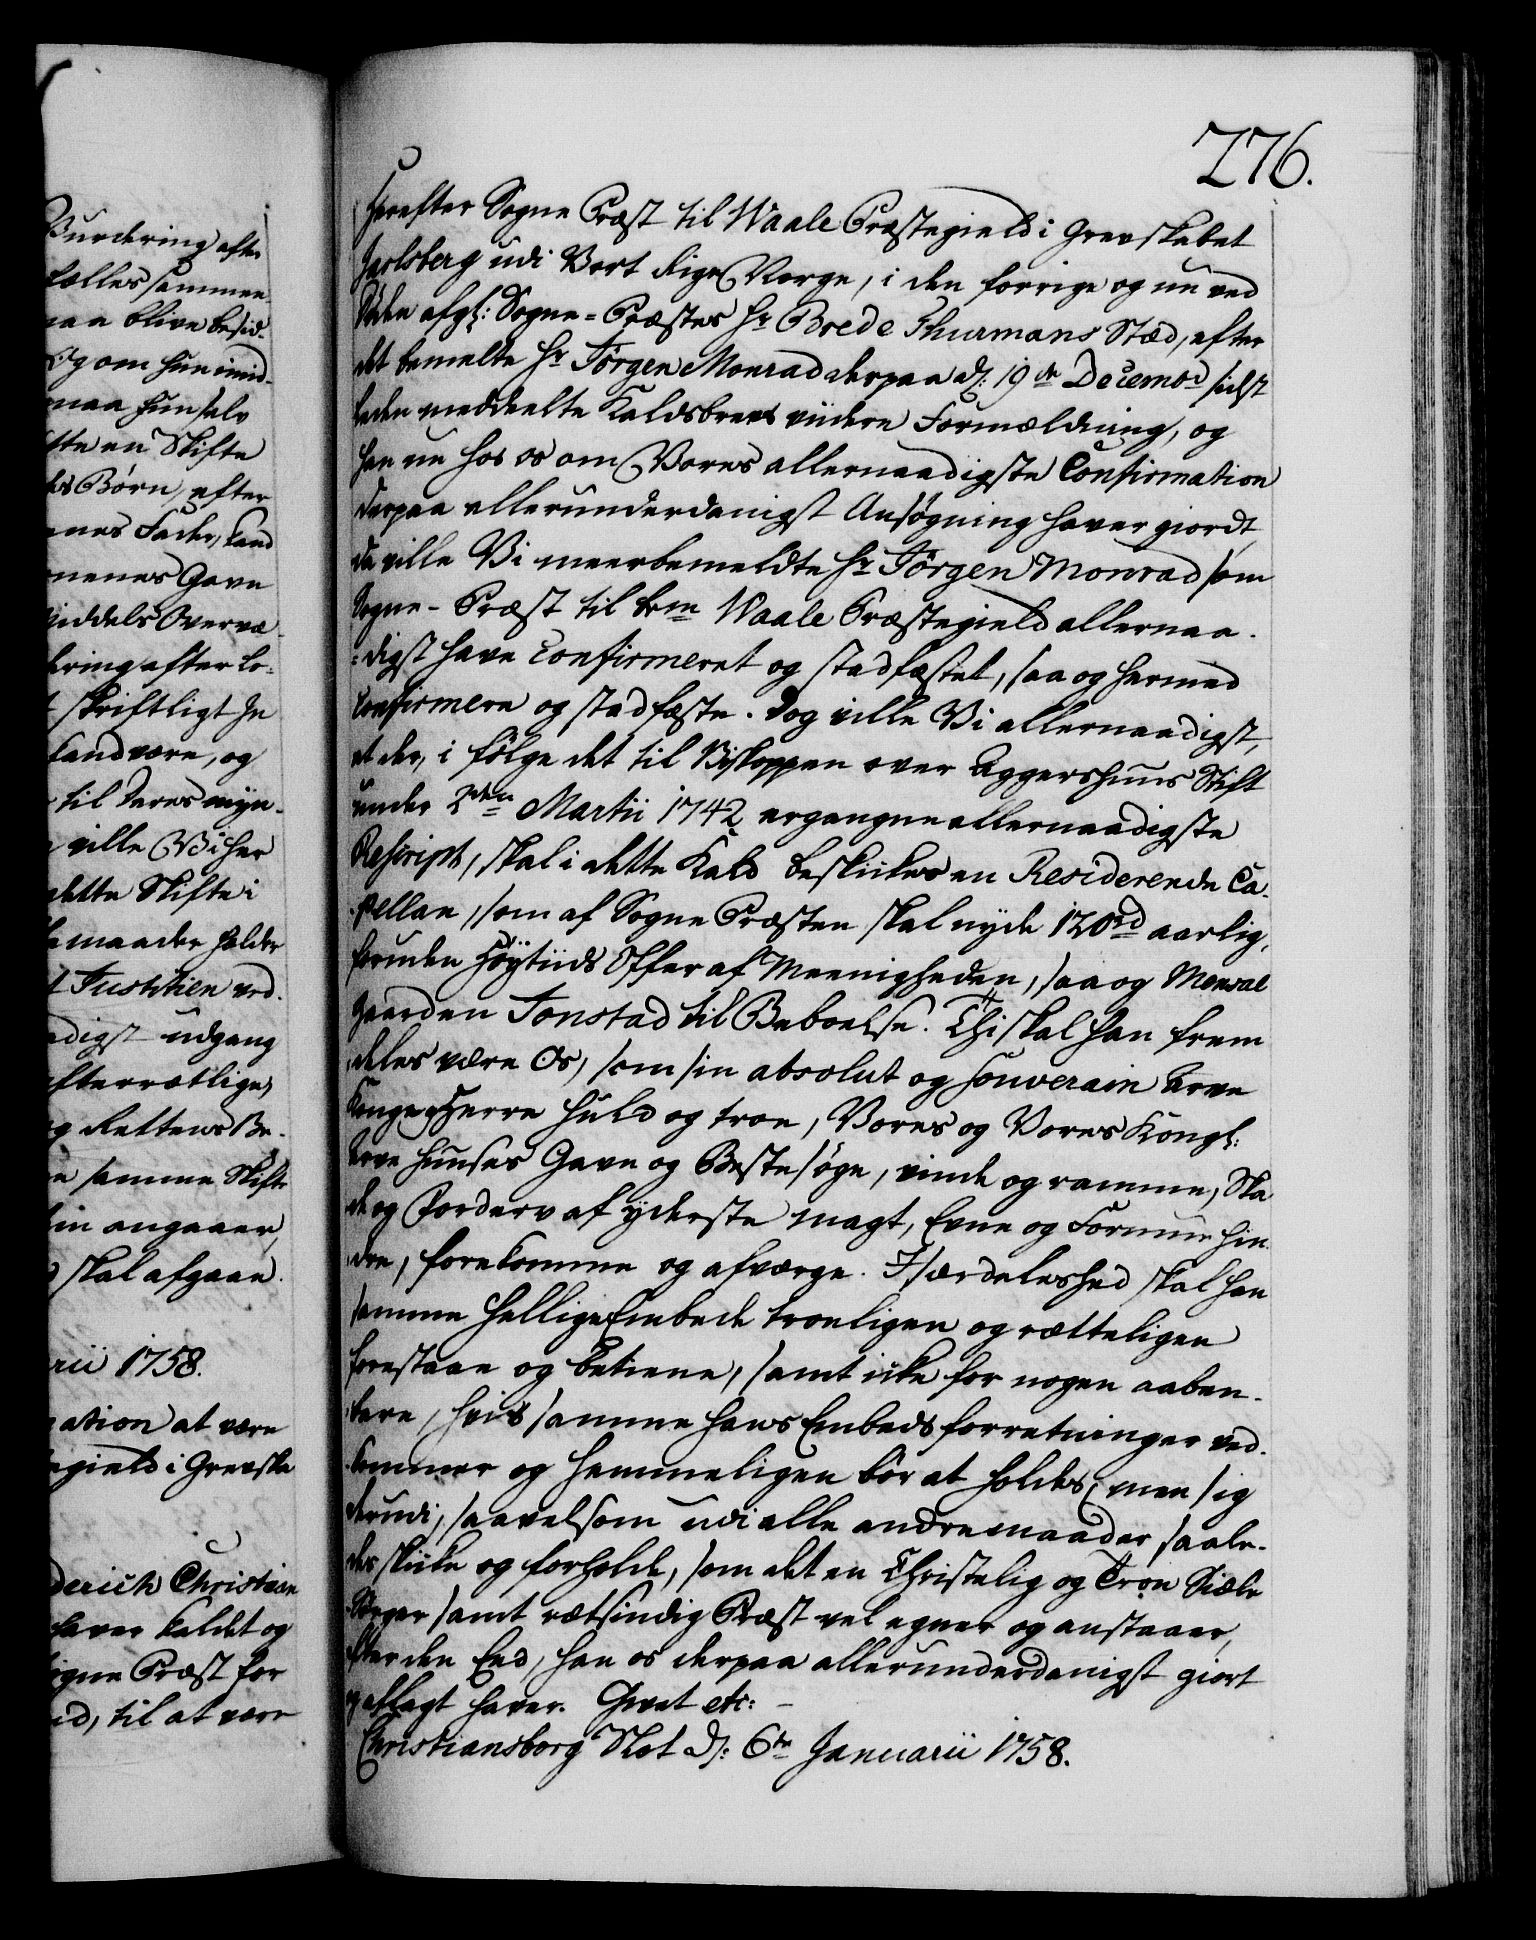 Burdering efter
fælles sammen
maa blive besid-
Og om hun imid-
maa hun selv
ette en Skifte
des Børn, efter
enes Fader, kand
nenes Gavn
middels Overvæ-
dering efter Lo-
t skriftligt In
kand være, og
til deres myn-
ville Wi her
dette Skifte i
e maader holder
t Justitien ved-
adigst udgang
efterrætlige,
og Rettens Be-
samme Skifte
in angaaer,
skal afgaae.
rii 1758.
ation at være
egield i Grevska
derich Christian
haver kaldet og
ogne Præst for
ed, til at være
276.
herefter Sogne Præst til Waale Præstegield i Grevskabet
Jarlsberg udi Vort Rige Norge, i den forrige og nu ved
Døden afgl: Sogne-Præstes Hr Brede Thurmans Stæd, efter
det bemelte Hr Jørgen Monrad derpaa d: 19de Decembr sidst-
leden meddeelte Kaldsbrevs viidere Formældning, og
han nu hos os om Vores allernaadigste Confirmation
derpaa allerunderdanigst Ansøgning haver giordt,
da ville Vi meerbemeldte Hr Jørgen Monrad som
Sogne-Præst til bem Waale Præstegield allernaa-
digst have confirmeret og stadfæstet, saa og hermed
confirmere og stadfæste. Dog ville Vi allernaadigst,
at der, i følge det til Biskoppen over Aggershuus Stift
under 2den Martii 1742 ergangne allernaadigste
Rescript, skal i dette Kald beskikkes en Residerende Ca-
pellan, som af Sogne Præsten skal nyde 120 rd aarlig,
foruden Høytiids Offer af Meenigheden, saa og Mensal
Gaarden Jonstad til Beboelse. Thi skal han frem
deles være Os, som sin absolut og souverain Arve
Konge og Herre huld og troe, Vores og Vores Kongl:
Arve Huuses Gavn og Beste søge, vinde og ramme, Ska
de og Forderv af yderste magt, Evne og Formue hin-
dre, forekomme og afværge. I særdeleshed skal han
samme hellige Embede troeligen og rætteligen
forestaae og betiene, samt icke for nogen aaben-
bare, hvis samme hans Embeds forretninger ved-
kommer og hemmeligen bør at holdes, men sig
derudi, saavelsom udi alle andre maader saale-
des skikke og forholde, som det en Christelig og Troe Siæle
Sørger samt rætsindig Præst vel egner og anstaaer,
efter den Eed, han os derpaa allerunderdanigst giort
og aflagt haver. Givet etc:
Christiansborg Slot d: 6te Januarii 1758.